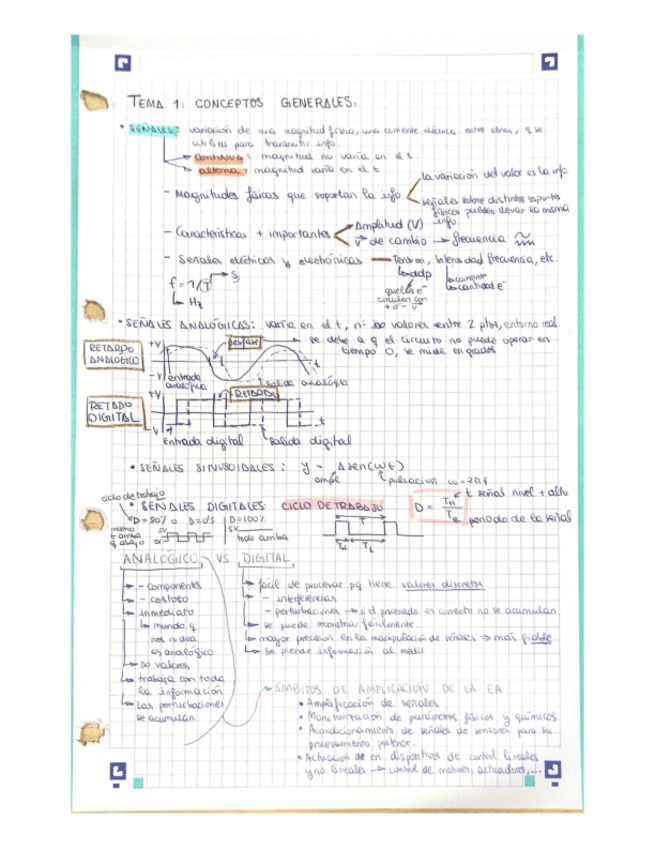 TEMA 1: CONCEPTOS GENERALES:
• SEÑALES: variación de una magnitud física, una corriente eléctrica entre otras, q se
utiliza para transmitir info.
continua: magnitud no varía en el t.
alterna: magnitud varía en el t
- Magnitudes físicas que soportan la info
la variación del valor es la info.
señales sobre distintos soportes
físicos pueden llevar la misma
info
- Características + importantes
Amplitud (V)
V de cambio → frecuencia
- Señales eléctricas y electrónicas — Tensión, Intensidad frecuencia, etc.
ddp
corriente
cantidad e⁻
que los e⁻
circulen con
+ o - V
f = 1/T → s
Hz
• SEÑALES ANALÓGICAS: varía en el t, ni ∞ valores entre 2 ptos, entorno real
RETARDO
ANALÓGICO
+V
-V
desfase
se debe a q el circuito no puede operar en
tiempo 0, se mide en grados
t
entrada
analógica
salida analógia
RETADO
DIGITAL
+V
-V
RETARDO
t
Entrada digital
salida digital
• SEÑALES SINUSOIDALES: y = A sen(ωt)
ampl
pulsación ω=2πf
ciclo de trabajo
• SEÑALES DIGITALES: CICLO DE TRABAJO
D = TH/TE
t señal nivel + alto
periodo de la señal
D=50% o D=0'5
D=100%
mismo
t arriba
q abajo
5V
0V
5V
todo arriba
T
TH
TL
ANALÓGICO VS DIGITAL
- componentes
- costoso
inmediato
mundo q
nos rodea
es analógico
∞ valores
trabaja con toda
la información
Las perturbaciones
se acumulan
fácil de procesar pq tiene valores discretos
- interferencias
- perturbaciones → si el procesado es correcto no se acumulan
se puede reconstruir fácilmente
mayor precisión en la manipulación de señales ⇒ más fiable
se pierde información al medir
ÁMBITOS DE AMPLICACIÓN DE LA EA
• Amplificación de señales
• Monitorización de parámetros físicos y químicos
• Acondicionamiento de señales de sensores para su
procesamiento posterior.
• Actuación en dispositivos de control lineales
y no lineales → control de motores, actuadores,...